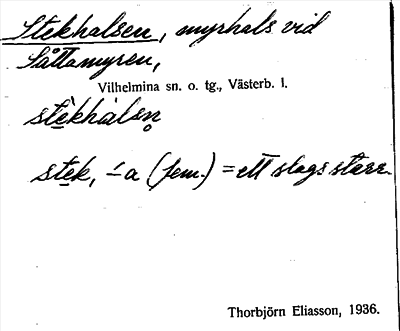 Stekhalsen, myrhals vid
Såttamyren,
Vilhelmina sn. o. tg., Västerb. l.
stèkhàlsn̥
stek, -́a (fem.) = ett slags starr.
Thorbjörn Eliasson, 1936.